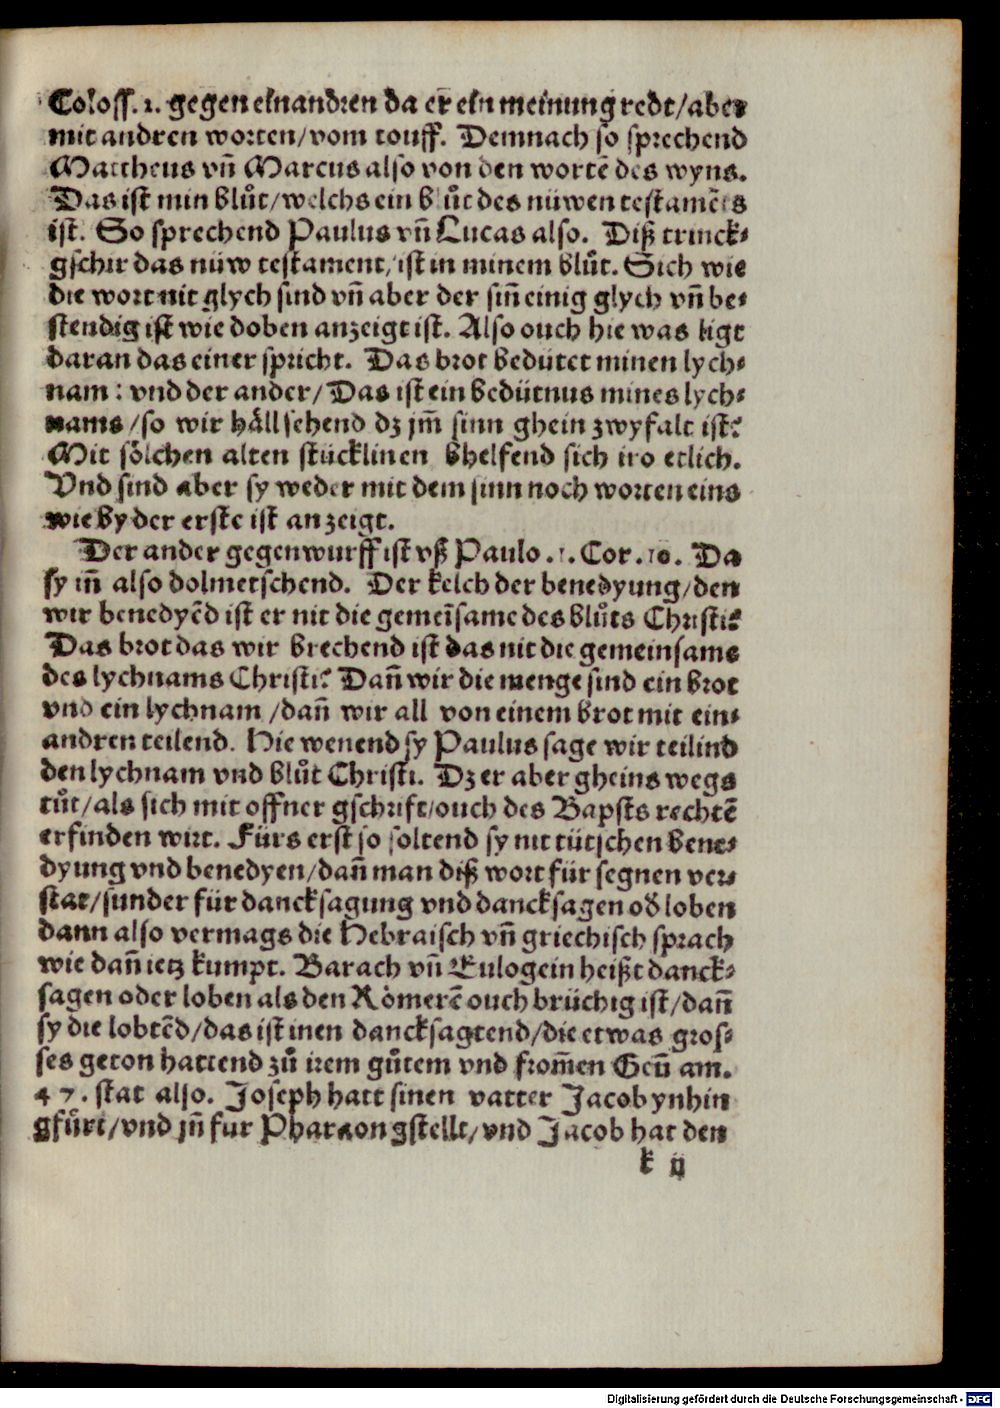 Coloss. 1. gegen einandren da er ein meinung redt/aber
mit andren worten/vom touff. Demnach so sprechend
Mattheus vñ Marcus also von den wortē des wyns.
Das ist min blůt/welchs ein blůt des nüwen testamēts
ist. So sprechend Paulus vñ Lucas also. Diß trinck⸗
gschir das nüw testament/ist in minem blůt. Sich wie
die wort nit glych sind vñ aber der siñ einig glych vñ be⸗
stendig ist wie doben anzeigt ist. Also ouch hie was ligt
daran das einer spricht. Das brot bedütet minen lych⸗
nam: vnd der ander/Das ist ein bedütnus mines lych⸗
nams/so wir häll sehend dz jm̄ sinn ghein zwyfalt ist?
Mit sölchen alten stücklinen bhelfend sich iro etlich.
Vnd sind aber sy weder mit dem sinn noch worten eins
wie by der erste ist anzeigt.
Der ander gegenwurff ist vß Paulo .1. Cor .10. Da
sy iñ also dolmetschend. Der kelch der benedyung/den
wir benedyēd ist er nit die gemeīsame des blůts Christi?
Das brot das wir brechend ist das nit die gemeinsame
des lychnams Christi? Dañ wir die menge sind ein brot
vnd ein lychnam/dañ wir all von einem brot mit ein⸗
andren teilend. Hie wenend sy Paulus sage wir teilind
den lychnam vnd blůt Christi. Dz er aber gheins wegs
tůt/als sich mit offner gschrift/ouch des Bapsts rechtē
erfinden wirt. Fürs erst so soltend sy nit tütschen bene⸗
dyung vnd benedyen/dañ man diß wort für segnen ver⸗
stat/sunder für dancksagung vnd dancksagen oð loben
dann also vermags die Hebraisch vñ griechisch sprach
wie dañ ietz kumpt. Barach vñ Eulogein heißt danck⸗
sagen oder loben als den Römerē ouch brüchig ist/dañ
sy die lobtēd/das ist inen dancksagtend/die etwas gros⸗
ses geton hattend zů irem gůtem vnd from̄en Geñ am.
47. stat also. Joseph hatt sinen vatter Jacob ynhin
gfůrt/vnd jñ fur Pharaon gstellt/vnd Jacob hat den
k ij
Digitalisierung gefördert durch die Deutsche Forschungsgemeinschaft - DFG